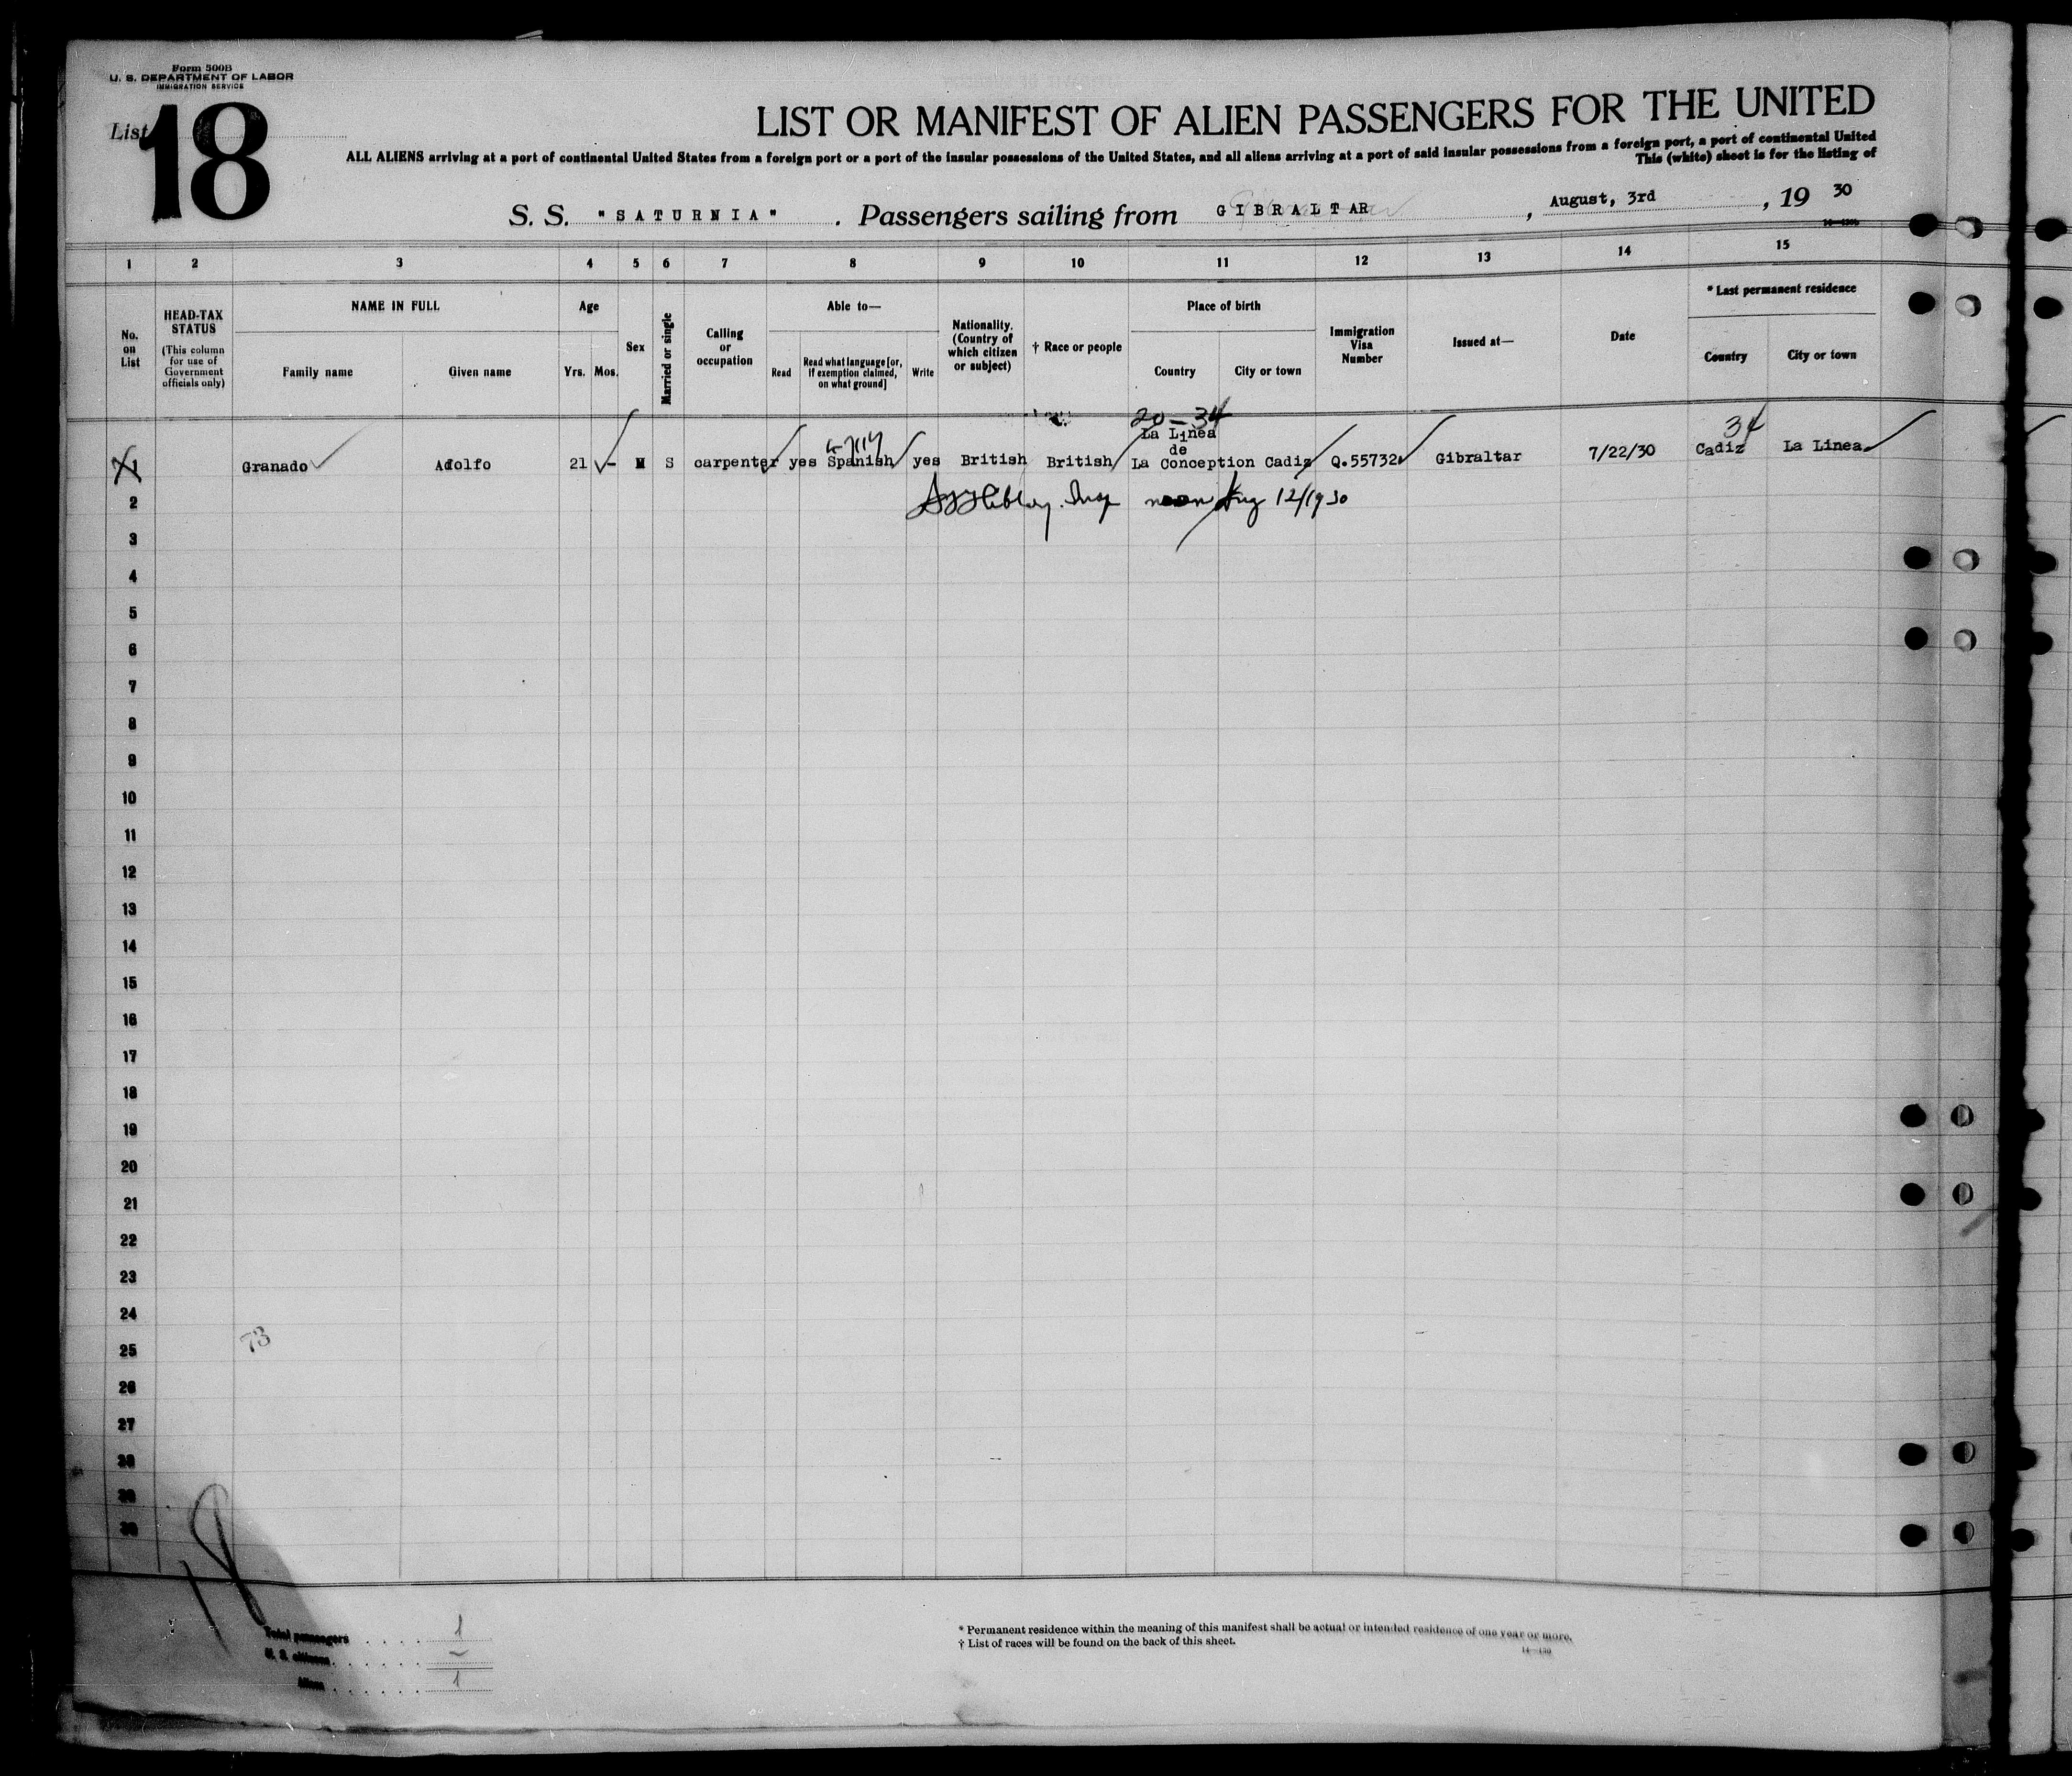 Form 500B
U. S. DEPARTMENT OF LABOR
IMMIGRATION SERVICE
List 18
LIST OR MANIFEST OF ALIEN PASSENGERS FOR THE UNITED
ALL ALIENS arriving at a port of continental United States from a foreign port or a port of the insular possessions of the United States, and all aliens arriving at a port of said insular possessions from a foreign port, a port of continental United
This (white) sheet is for the listing of
S. S. "SATURNIA" . Passengers sailing from GIBRALTAR , August, 3rd , 19 30
1 2 3 4 5 6 7 8 9 10 11 12 13 14 15
No. on List
HEAD-TAX STATUS (This column for use of Government officials only)
NAME IN FULL
Family name Given name
Age
Yrs. Mos.
Sex
Married or single
Calling or occupation
Able to—
Read
Read what language [or, if exemption claimed, on what ground]
Write
Nationality. (Country of which citizen or subject)
† Race or people
Place of birth
Country City or town
Immigration Visa Number
Issued at—
Date
* Last permanent residence
Country City or town
20-34
34
La Linea
de
1 Granado Adolfo 21 - M S carpenter yes Spanish yes British British La Conception Cadiz Q.55732 Gibraltar 7/22/30 Cadiz La Linea
2 Insp noon Aug 12/1930
3
4
5
6
7
8
9
10
11
12
13
14
15
16
17
18
19
20
21
22
23
24
73
25
26
27
28
29
30
18
Total passengers . . . . 1
U. S. citizens . . . . . . –
Aliens . . . . . . 1
* Permanent residence within the meaning of this manifest shall be actual or intended residence of one year or more.
† List of races will be found on the back of this sheet.